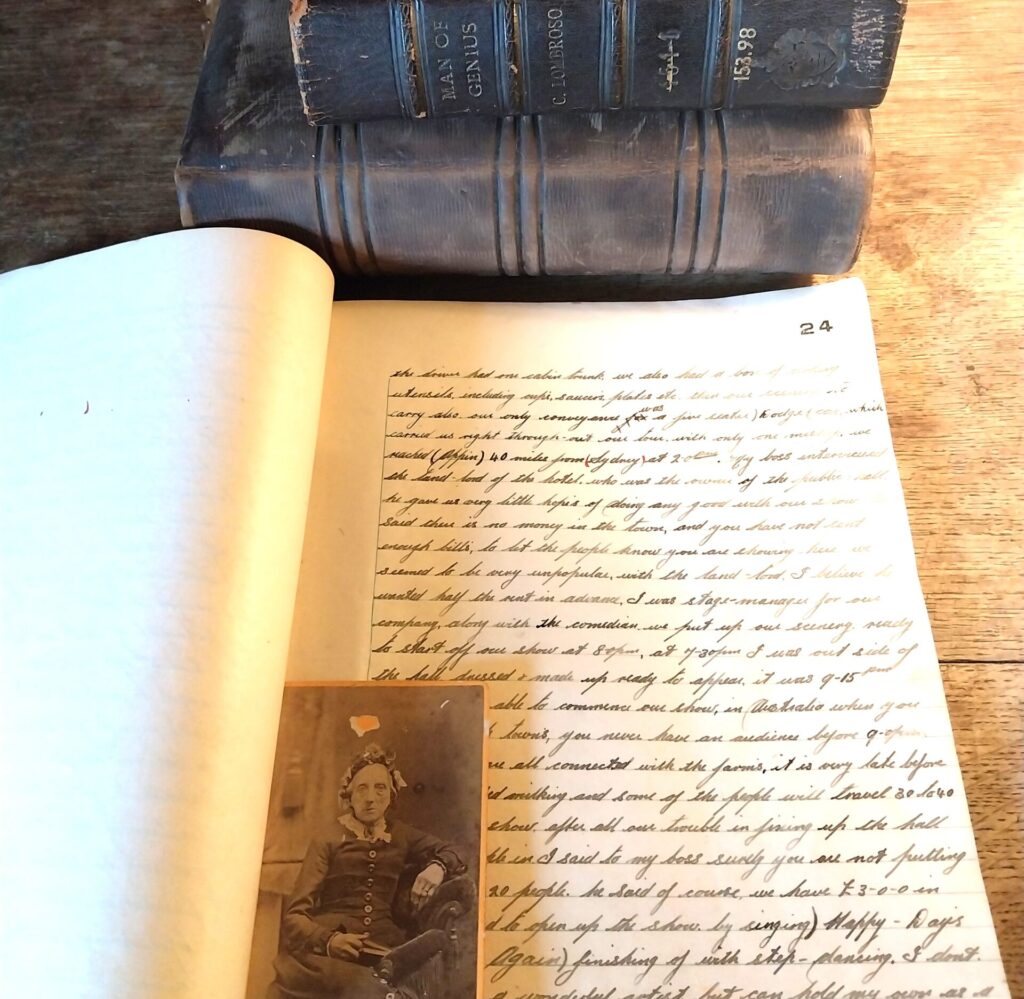 MAN OF
GENIUS
C. LOMBROSO
153.98
24
the driver had one cabin trunk, we also had a box of
utensils, including cups, saucers, plates etc. then our scenery
carry also. our only conveyance was a five seater) Dodge (car, which
carried us right through-out our tour, with only one mishap, we
reached (Appin) 40 miles from (Sydney) at 2-0 . My boss interviewed
the land-lord of the hotel, who was the owner of the public hall
he gave us very little hopes of doing any good with our show
said there is no money in the town, and you have not sent
enough bills, to let the people know you are showing here we
seemed to be very unpopular, with the land-lord. I believe he
wanted half the rent in advance, I was stage-manager for our
company, along with the comedian we put up our scenery ready
to start off our show at 8-0pm, at 7-30pm I was out side of
the hall dressed & made up ready to appear, it was 9-15 pm
able to commence our show, in (Australia when you
towns, you never have an audience before 9-0pm,
all connected with the farms, it is very late before
milking and some of the people will travel 30 to 40
show, after all our trouble in fixing up the hall
in I said to my boss surely you are not putting
20 people. he said of course, we have £3-0-0 in
to open up the show by singing) Happy - Days
Again) finishing of with step-(dancing. I dont
a wonderful artist but can hold my own as a